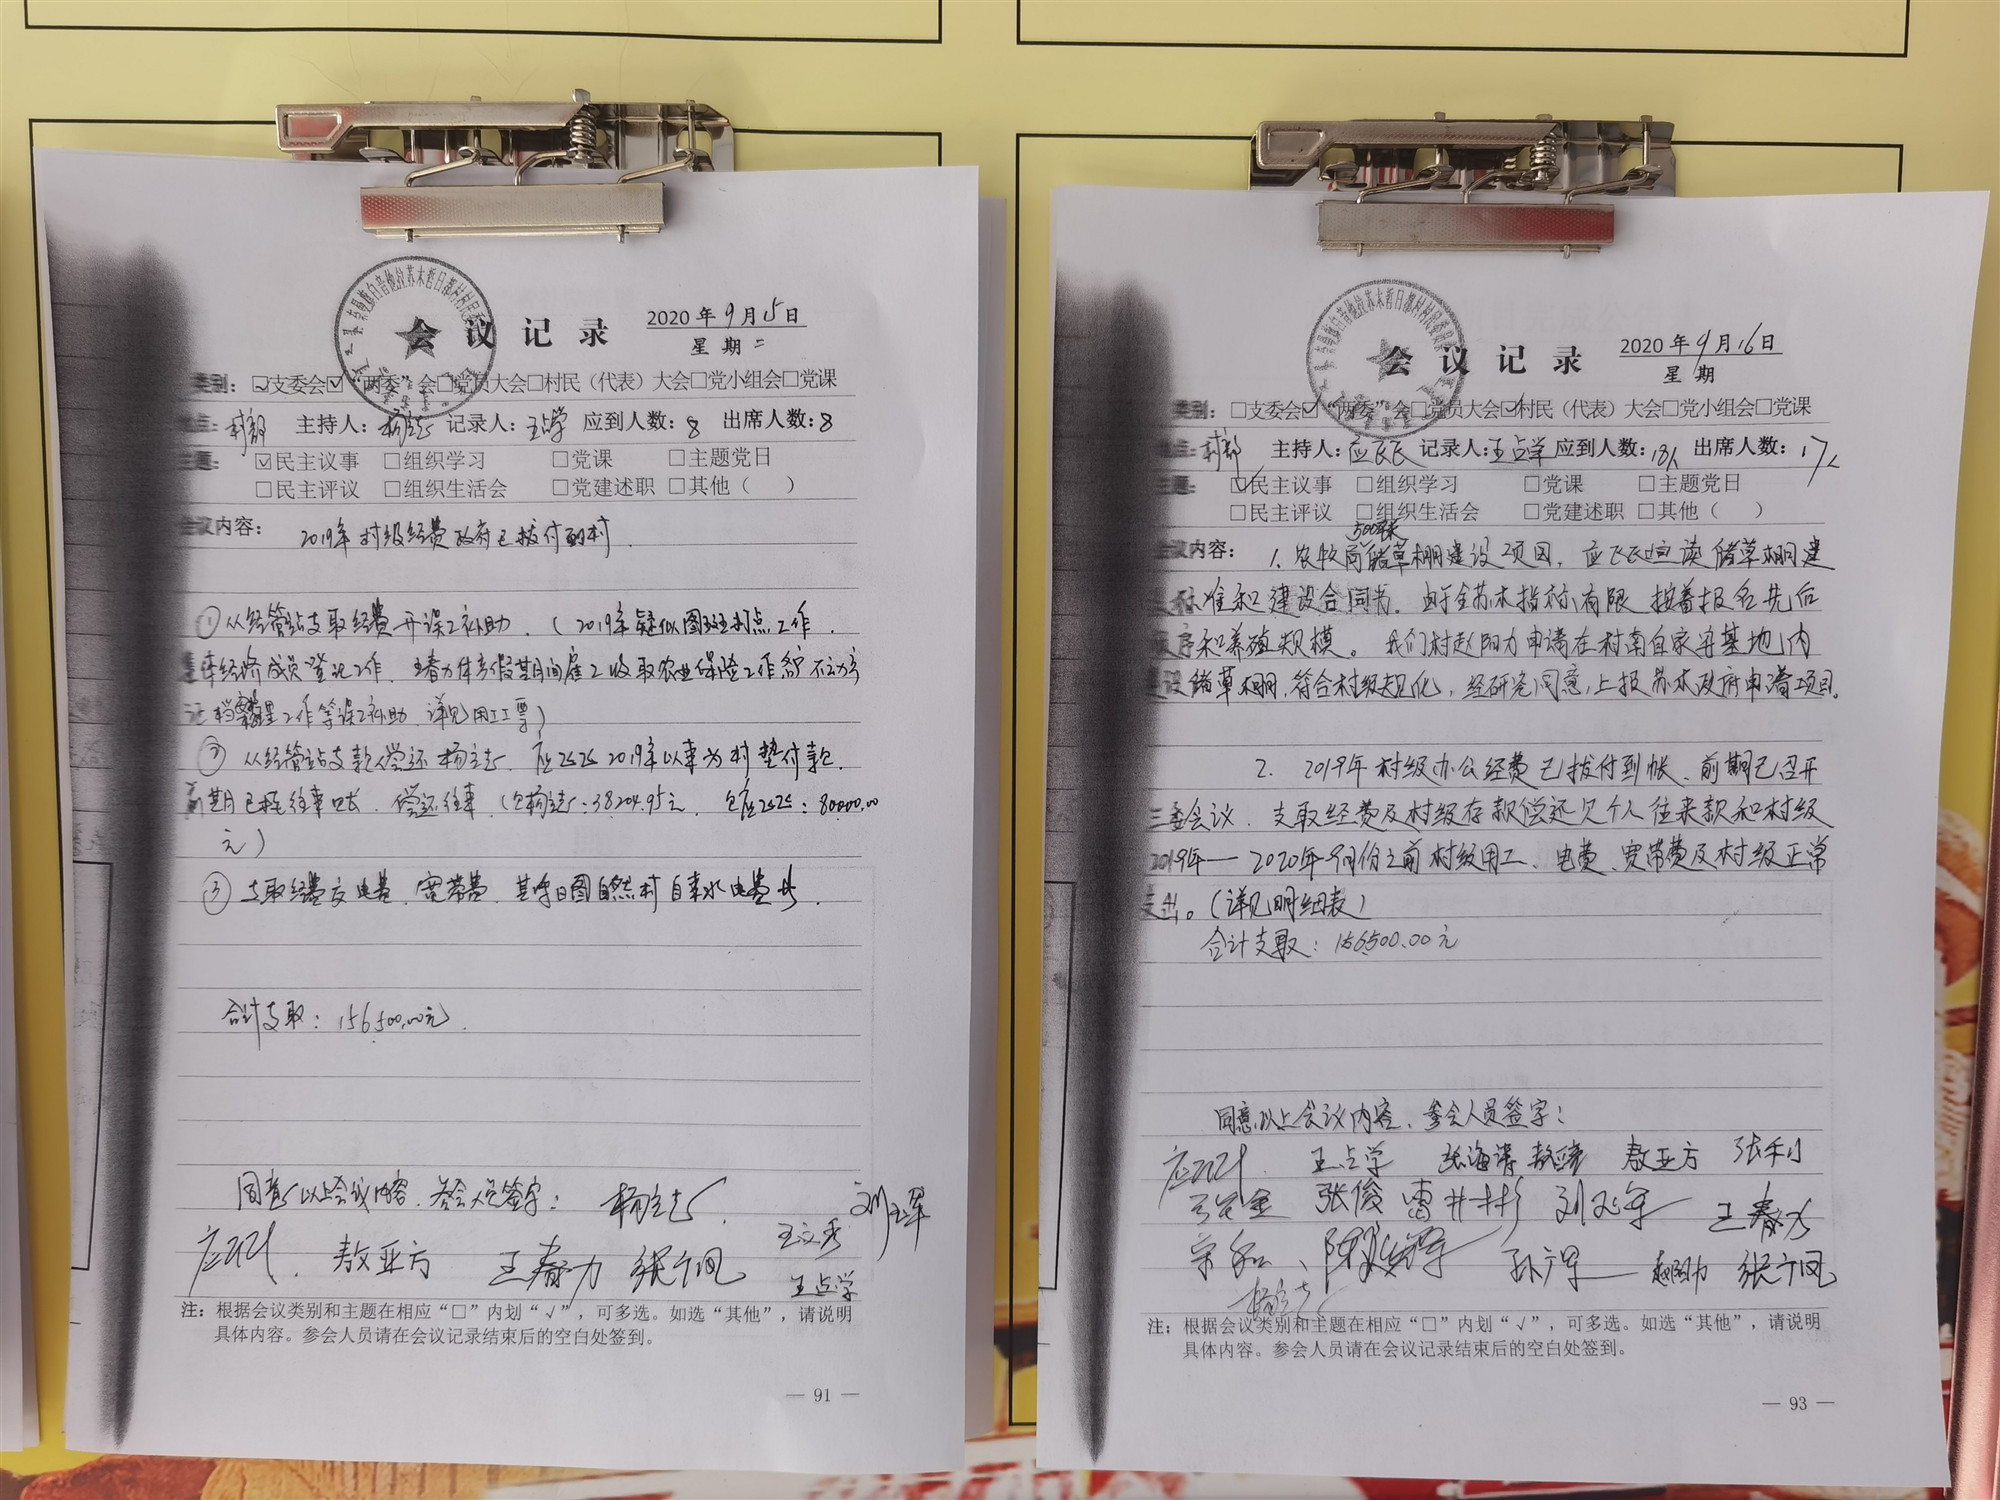 会议记录
2020年9月15日
星期二
类别：☑支委会☑“两委”会□党员大会□村民（代表）大会□党小组会□党课
地点：村部 主持人：杨立志 记录人：王占学 应到人数：8 出席人数：8
主题：☑民主议事 □组织学习 □党课 □主题党日
□民主评议 □组织生活会 □党建述职 □其他（ ）
会议内容：2019年村级经费政府已拨付到村.
①从经管站支取经费开误工补助.（2019年疑似图斑判点工作.
集体经济成员登记工作.
工作等误工补助.详见用工票）
②从经管站支款偿还杨立志、应 2019年以来为村垫付款.
前期已 往来 .偿还往来（欠杨立志：38204.95元. 欠应 ：80000.00
元）
③支取经费交电费.宽带费. 自然村自来水电费 .
合计支取：156500.00元.
同意以上会议内容.参会人员签字：杨立志.
敖亚方 王春力 王文秀
王占学
注：根据会议类别和主题在相应“□”内划“√”，可多选。如选“其他”，请说明
具体内容。参会人员请在会议记录结束后的空白处签到。
— 91 —
会议记录
2020年9月16日
星期
类别：□支委会☑“两委”会□党员大会☑村民（代表）大会□党小组会□党课
地点：村部 主持人：应 记录人：王占学 应到人数：18人 出席人数：17人
主题：☑民主议事 □组织学习 □党课 □主题党日
□民主评议 □组织生活会 □党建述职 □其他（ ）
会议内容：1.农牧局 储草棚建设项目，应 宣读储草棚建
设标准和建设合同书.由于全苏木指标有限 按着报名先后
顺序和养殖规模。我们村赵阳力申请在村南自家 基地内
建设储草棚,符合村级规化,经研究同意,上报苏木政府申请项目.
2.2019年村级办公经费已拨付到帐、前期已召开
三委会议.支取经费及村级存款偿还欠个人往来款和村级
2019年—2020年9月份之前村级用工、电费、宽带费及村级正常
支出。（详见明细表）
合计支取：156500.00元
同意以上会议内容、参会人员签字：
王占学 张海涛 敖亚方 张利
张俊 雷井彬 王春力
杨立志
注：根据会议类别和主题在相应“□”内划“√”，可多选。如选“其他”，请说明
具体内容。参会人员请在会议记录结束后的空白处签到。
— 93 —